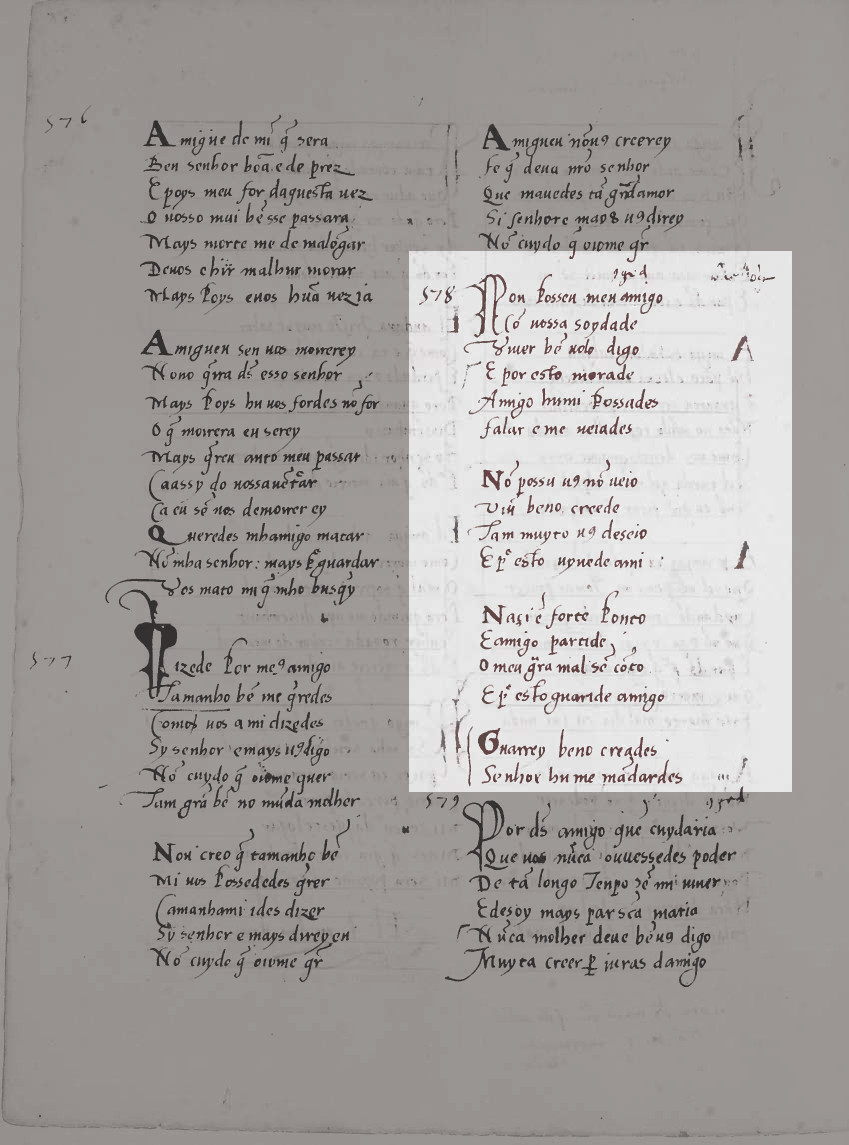 576
Amigue de mi q̃ sera
Ben senhor bõa e de prez
E poys meu for daquesta uez
O uosso mui bẽ sse passara
Mays morte me de malõgar
De uos e hir̃ malhur morar
Mays poys e uos hũa uez ia
Amigueu sen uos morrerey
Nono q̃rra ds̃ esso senhor
Mays poys hu uos fordes nõ for
O q̃ morrera eu serey
Mays q̃reu anto meu passar
Caassy do uossauẽtar
Ca eu sẽ uos de morrer ey
Queredes mhamigo matar
Nõ mha senhor: mays p̃ guardar
Uos mato mi q̃ mho busq̃y
577
Dizede por me9 amigo
Tamanho bẽ me q̃redes
Comos uos a mi dizedes
Sy senhor e mays u9 digo
Nõ cuydo q̃ oiome quer
Tam grã bẽ no mũdo molher
Non creo q̃ tamanho bẽ
Mi uos possededes q̃rer
Camanhami ides dizer
Sy senhor e mays direy en
Nõ cuydo q̃ oiome q̃r
Amigueu nõu9 creerey
Fe q̃ deua nr̃o senhor
Que mauedes tã grãdamor
Si senhore mays u9 direy
Nõ cuydo q̃ oiome q̃r
578
Non posseu meu amigo
Cõ uossa soydade
Uiuer bẽ uolo digo
E por esto morade
Amigo humi possades
falar e me ueiades
Nõ possu u9 nõ ueio
Uiũ beno creede
Tam muyto u9 deseio
E p̃ esto uyuede ami
Naçi ẽ forte ponto
E amigo partide
O meu grã mal sẽ cõto
E p̃ esto guaride amigo
Guarrey beno creades
Senhor hu me mãdardes
579
Por ds̃ amigo que cuydaria
Que uos nũca ouuessedes poder
De tã longo Tenpo sẽ mi uiuer
E desoy mays par scã maria
Nũca molher deue bẽ u9 digo
Muyta creer p̱ iuras damigo